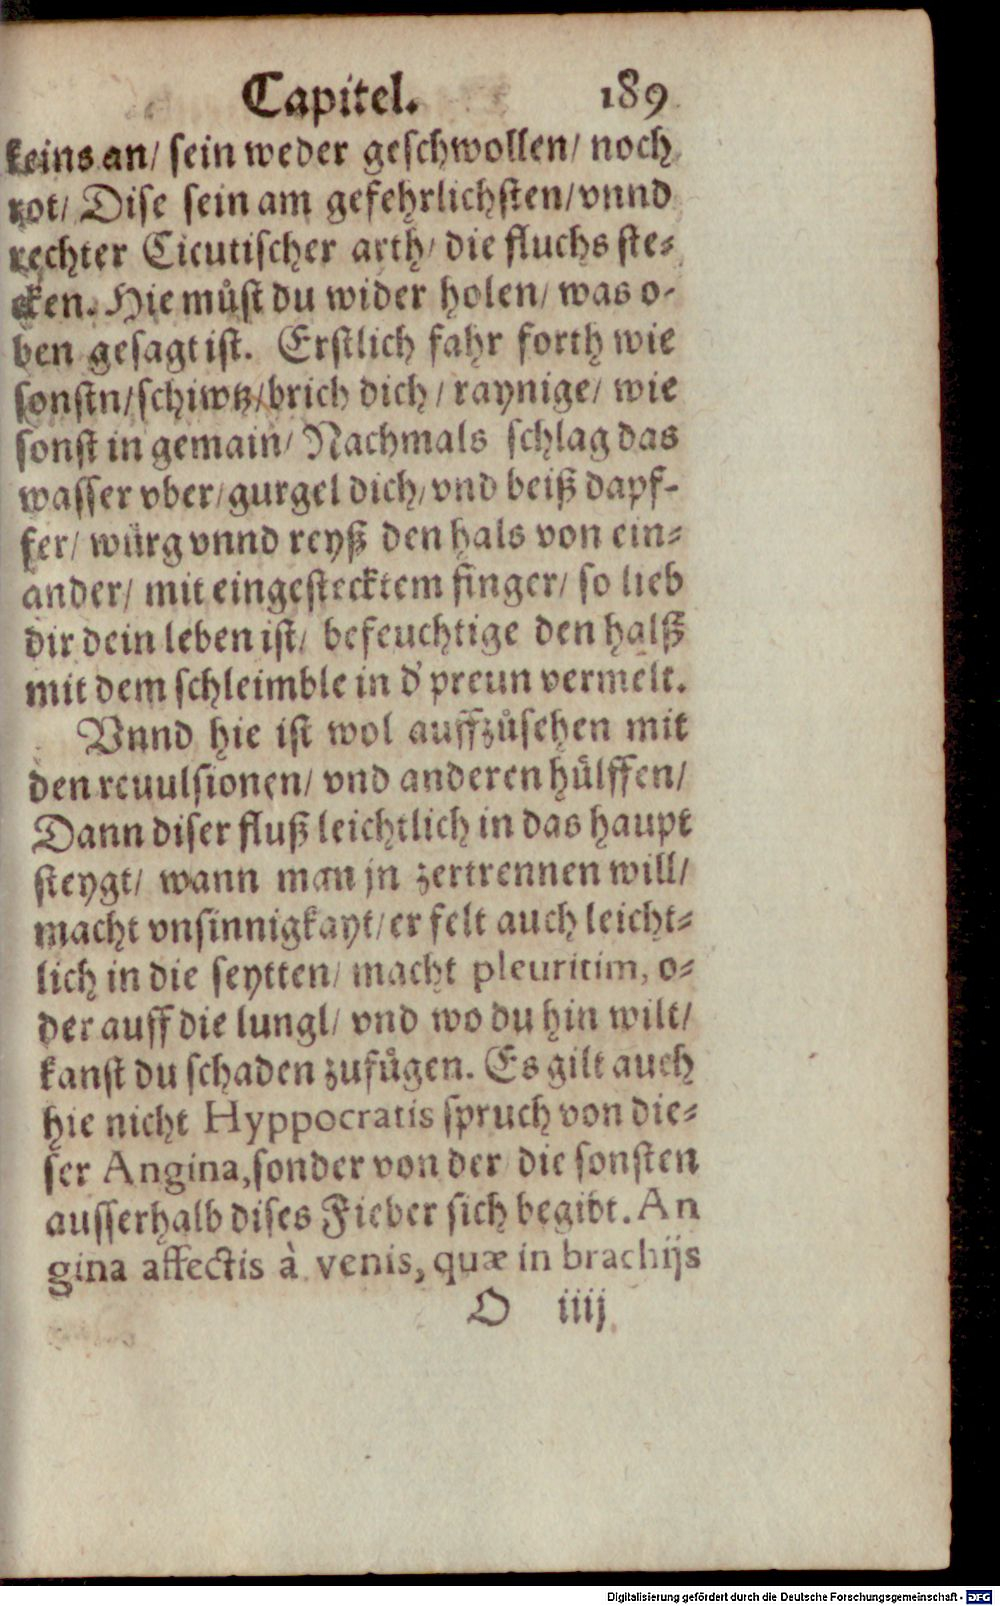 Capitel. 189
keins an/ sein weder geschwollen/ noch
rot/ Dise sein am gefehrlichsten/ vnnd
rechter Cicutischer arth/ die fluchs ste⸗
cken. Hie můst du wider holen/ was o-
ben gesagt ist. Erstlich fahr forth wie
sonstn/ schiwtz/ brich dich/ raynige/ wie
sonst in gemain/ Nachmals schlag das
wasser vber/ gurgel dich/ vnd beiß dapf-
fer/ würg vnnd reyß den hals von ein⸗
ander/ mit eingestecktem finger/ so lieb
dir dein leben ist/ befeuchtige den halß
mit dem schleimble in d' preun vermelt.
Vnnd hie ist wol auffzůsehen mit
den reuulsionen/ vnd anderen hůlffen/
Dann diser fluß leichtlich in das haupt
steygt/ wann man jn zertrennen will/
macht vnsinnigkayt/ er felt auch leicht⸗
lich in die seytten/ macht pleuritim, o⸗
der auff die lungl/ vnd wo du hin wilt/
kanst du schaden zufůgen. Es gilt auch
hie nicht Hyppocratis spruch von die⸗
ser Angina, sonder von der die sonsten
ausserhalb dises Fieber sich begibt. An
gina affectis à venis, quæ in brachijs
O iiij
Digitalisierung gefördert durch die Deutsche Forschungsgemeinschaft - DFG